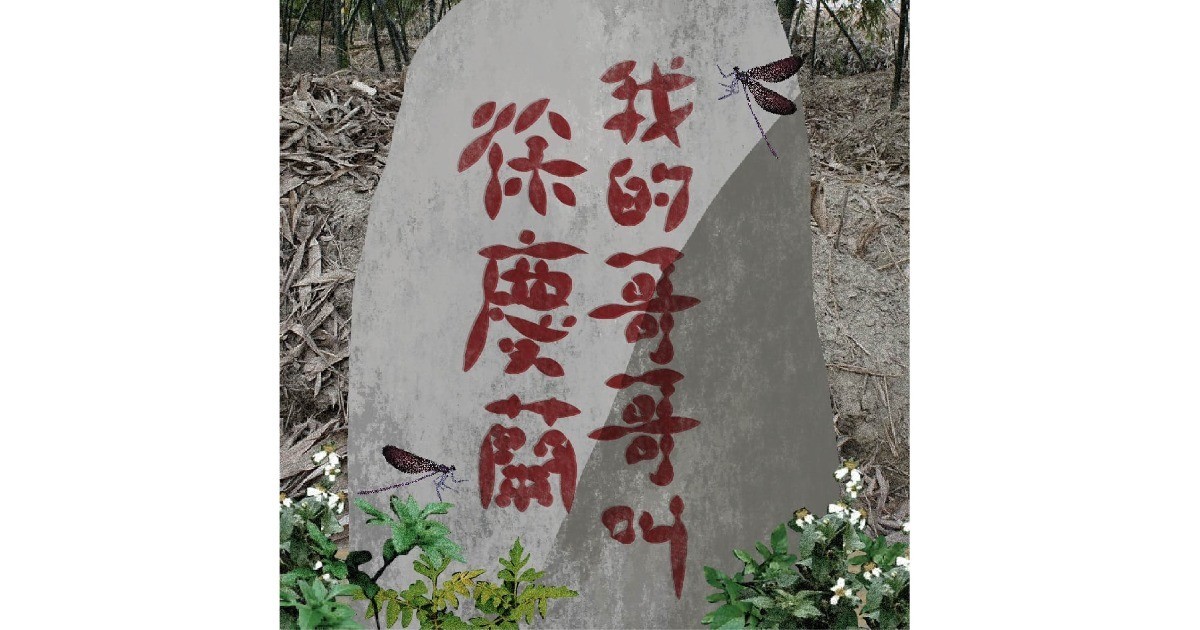 我的哥哥叫
徐慶蘭